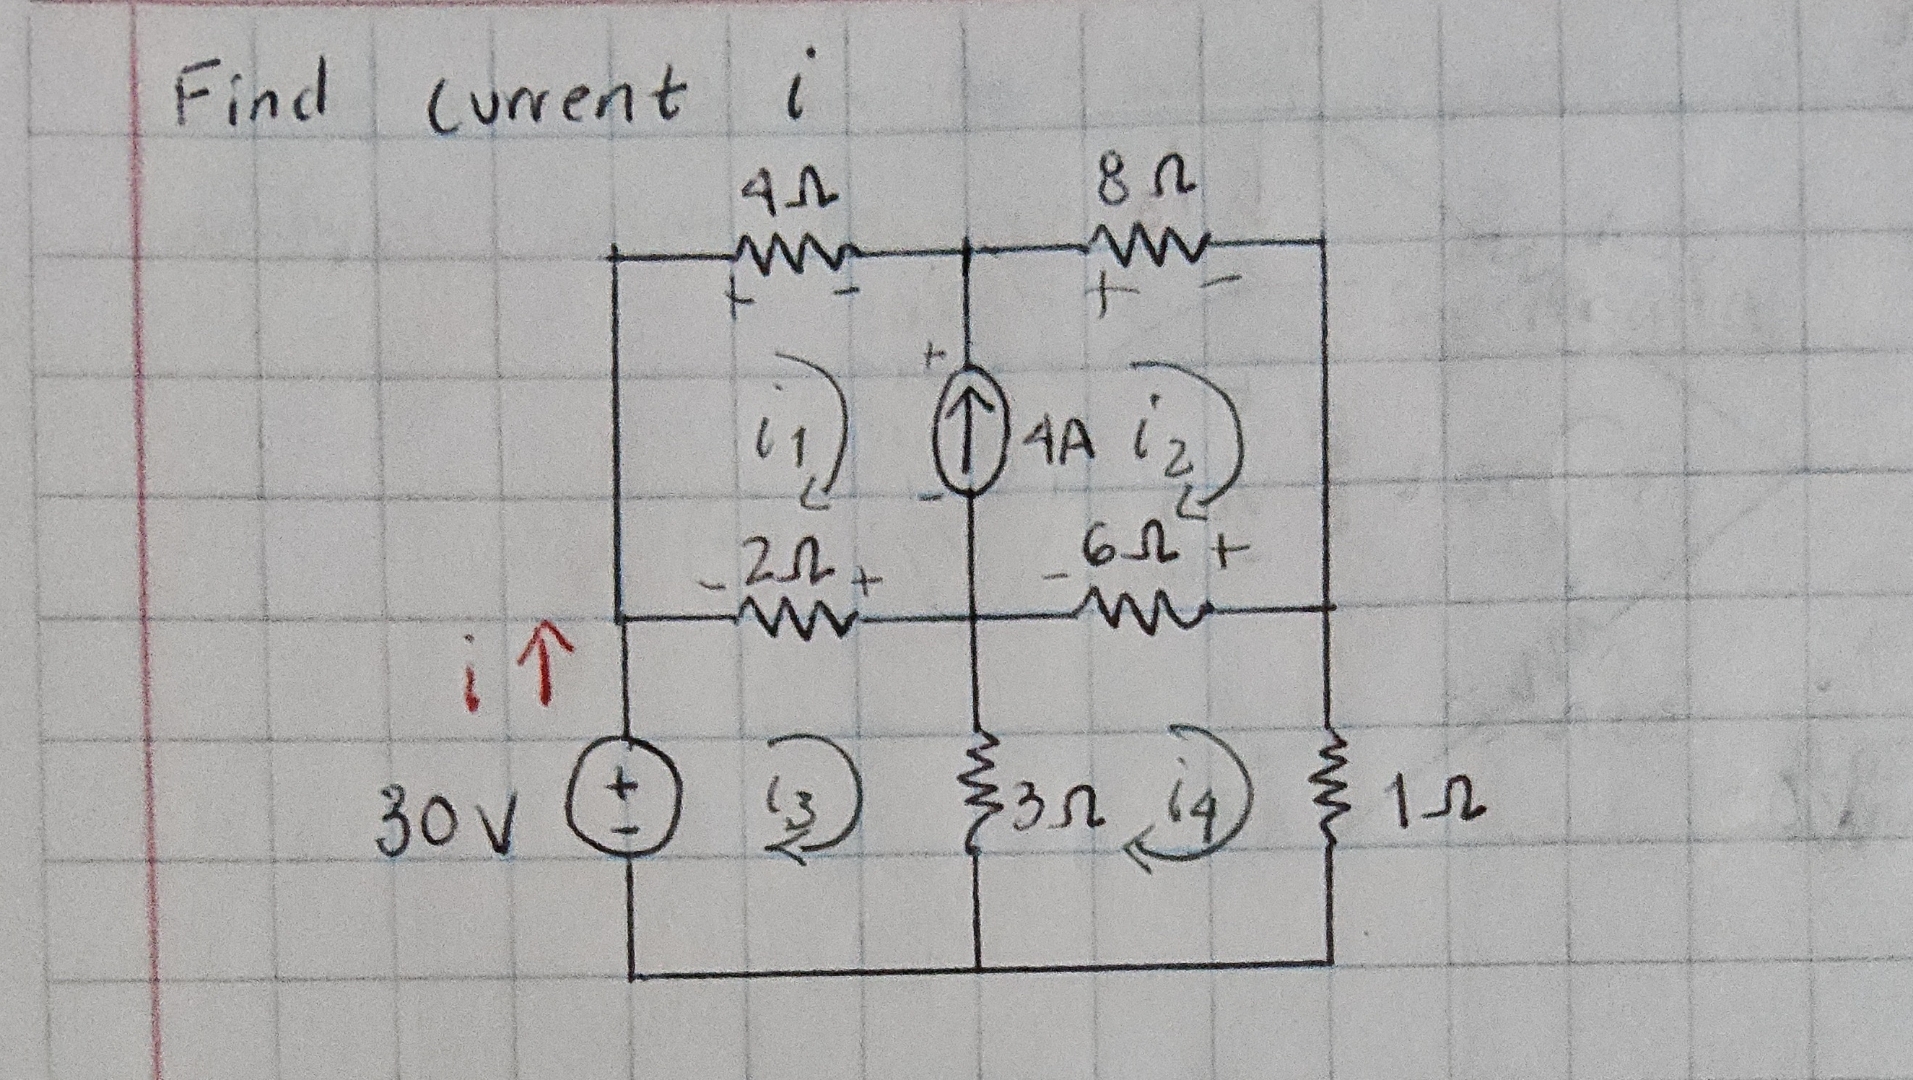 Find current i
4Ω 8Ω
+ - + -
+
i1 4A i2
-
- 2Ω + - 6Ω +
i
30V + - i3 3Ω i4 1Ω